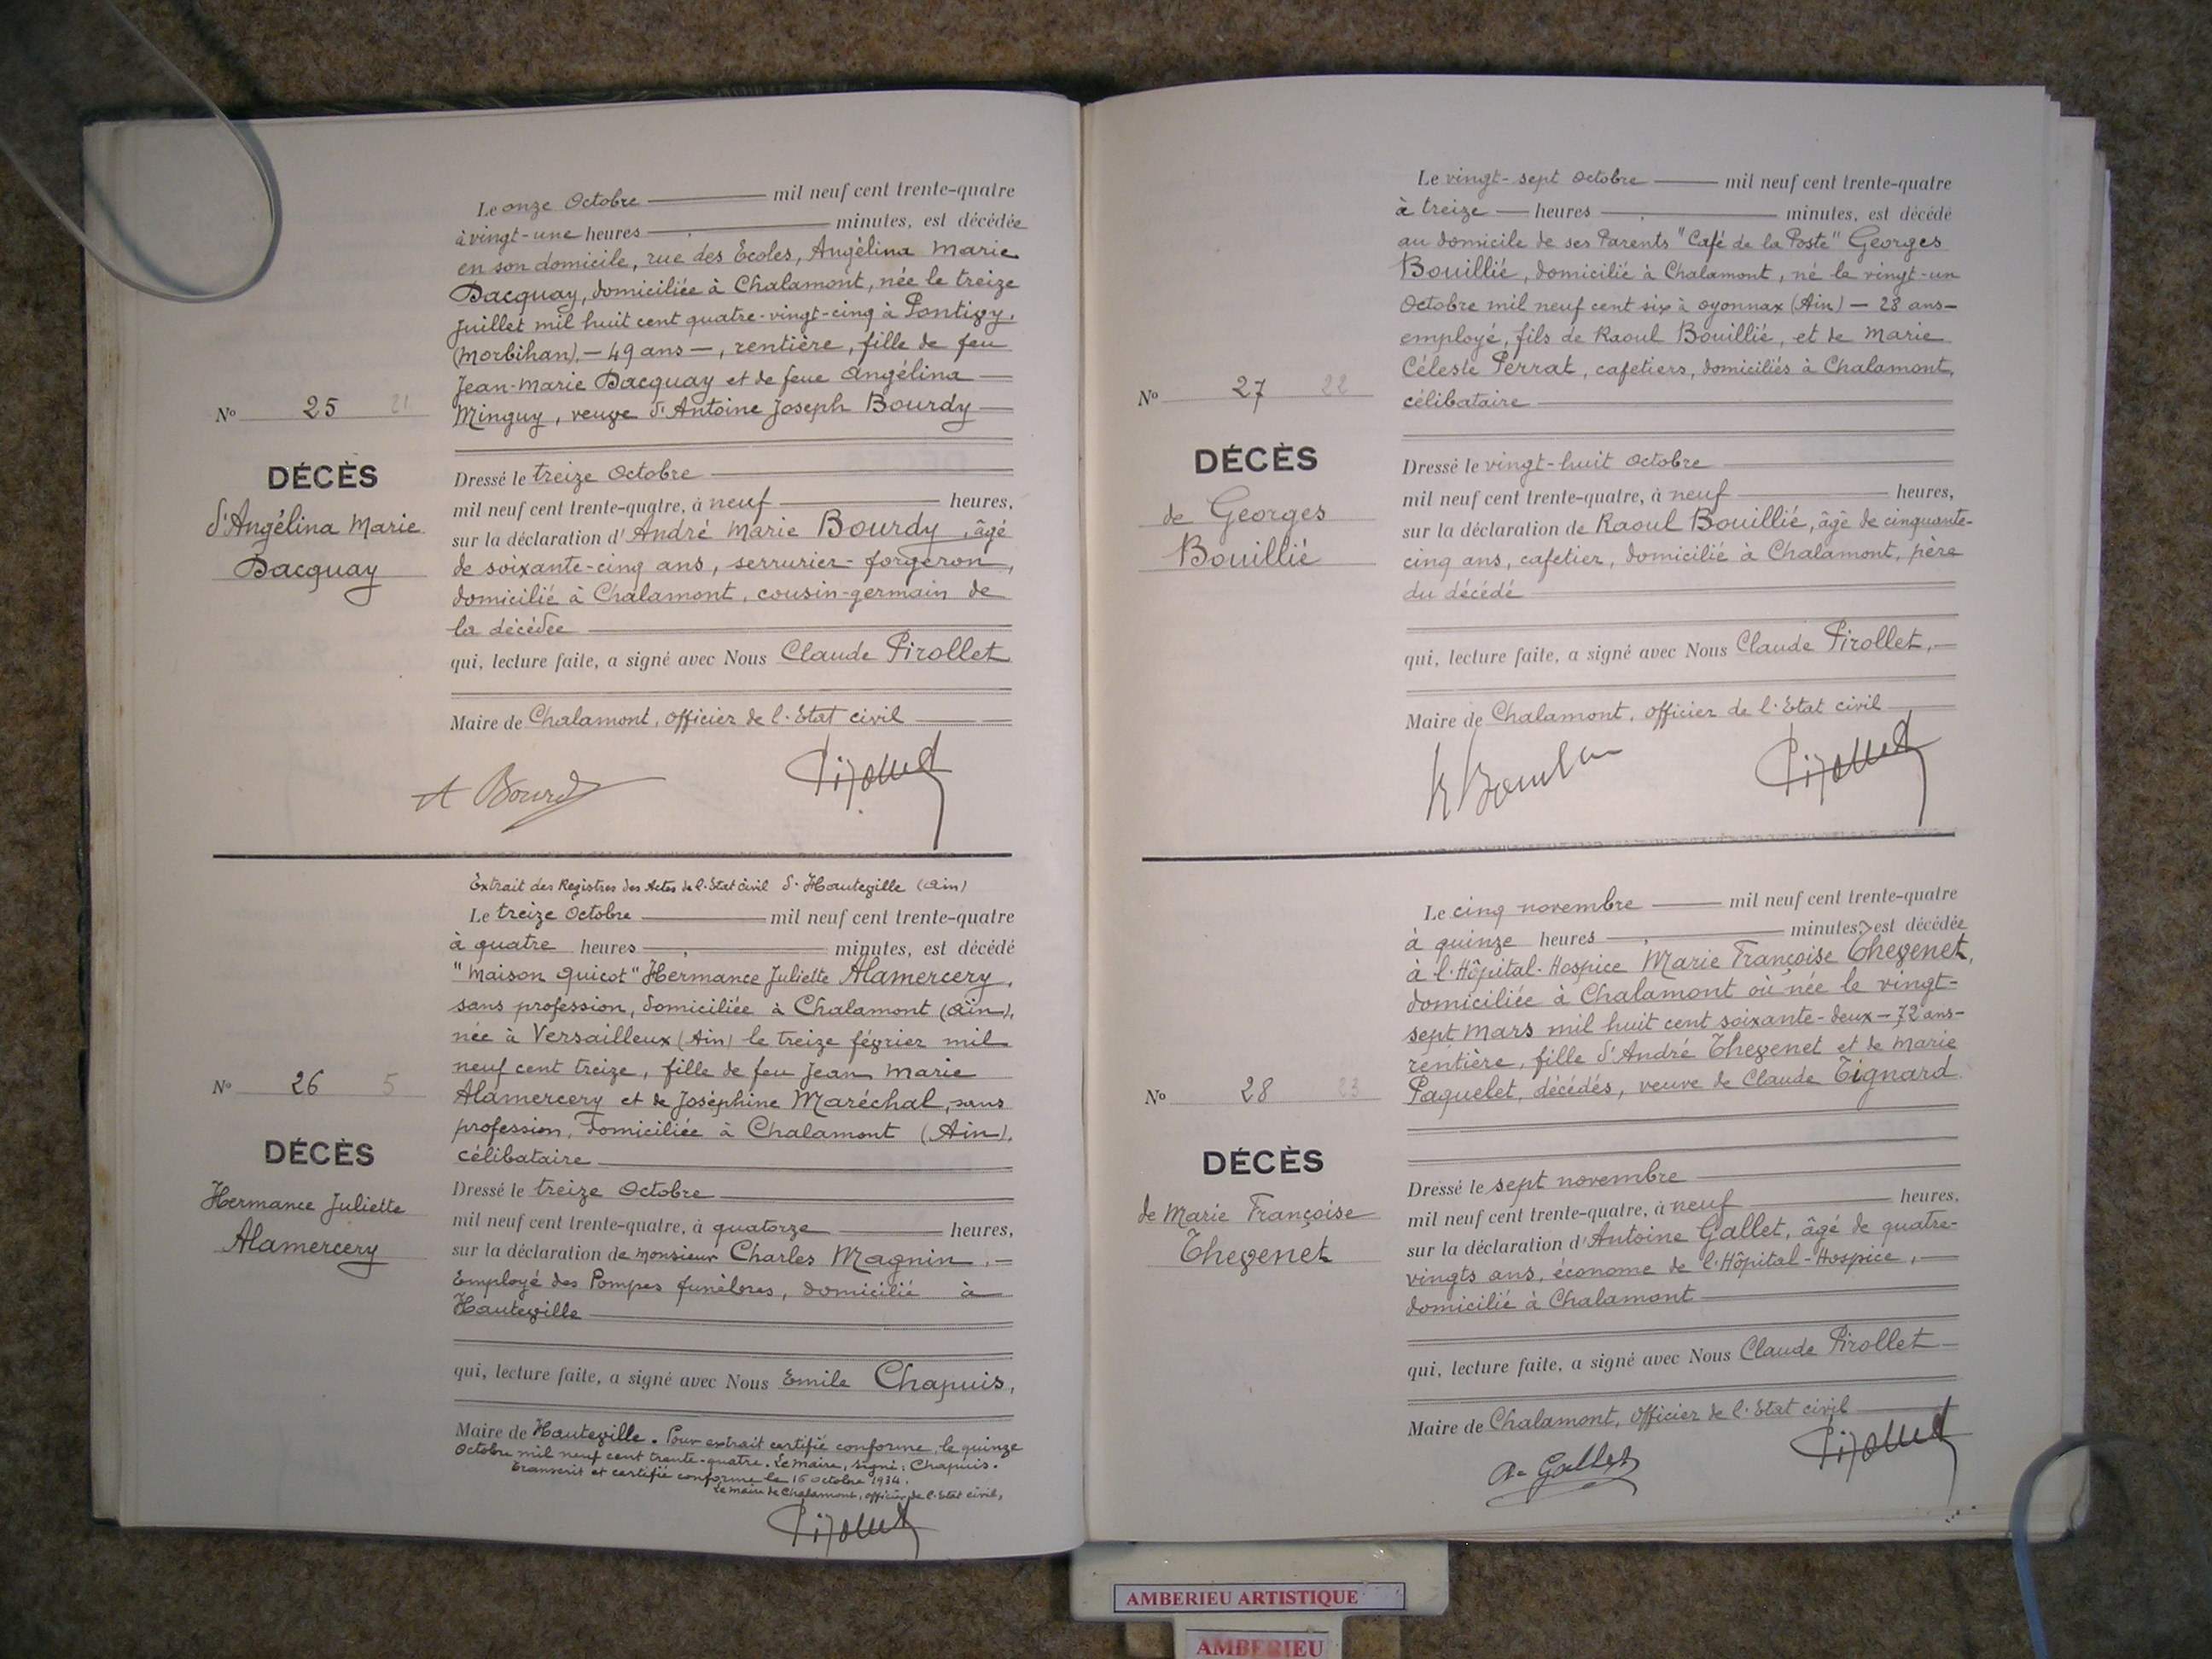 Le onze Octobre mil neuf cent trente-quatre
à vingt-une heures minutes, est décédée
en son domicile, rue des Ecoles, Angélina Marie
Dacquay, domiciliée à Chalamont, née le treize
Juillet mil huit cent quatre-vingt-cinq à Pontivy,
(Morbihan). — 49 ans —, rentière, fille de feu
Jean-Marie Dacquay et de feue Angélina
Minguy, veuve d'Antoine Joseph Bourdy
No 25 21
DÉCÈS
d'Angélina Marie
Dacquay
Dressé le treize Octobre
mil neuf cent trente-quatre, à neuf heures,
sur la déclaration d'André Marie Bourdy, âgé
de soixante-cinq ans, serrurier-forgeron,
domicilié à Chalamont, cousin-germain de
la décédée
qui, lecture faite, a signé avec Nous Claude Pirollet
Maire de Chalamont, officier de l'Etat civil
A Bourdy
Pirollet
Extrait des Registres des Actes de l'Etat Civil d'Hauteville (Ain)
Le treize Octobre mil neuf cent trente-quatre
à quatre heures minutes, est décédé
"Maison Guicot" Hermance Juliette Alamercery,
sans profession, domiciliée à Chalamont (Ain),
née à Versailleux (Ain) le treize février mil
neuf cent treize, fille de feu Jean Marie
Alamercery et de Joséphine Maréchal, sans
profession, domiciliée à Chalamont (Ain),
célibataire
No 26 5
DÉCÈS
Hermance Juliette
Alamercery
Dressé le treize Octobre
mil neuf cent trente-quatre, à quatorze heures,
sur la déclaration de Monsieur Charles Magnin,
Employé des Pompes funèbres, domicilié à
Hauteville
qui, lecture faite, a signé avec Nous Emile Chapuis,
Maire de Hauteville. Pour extrait certifié conforme, le quinze
Octobre mil neuf cent trente-quatre. Le Maire, signé: Chapuis.
Transcrit et certifié conforme le 16 octobre 1934.
Le maire de Chalamont, officier de l'Etat civil,
Pirollet
Le vingt-sept Octobre mil neuf cent trente-quatre
à treize heures minutes, est décédé
au domicile de ses Parents "Café de la Poste" Georges
Bouillié, domicilié à Chalamont, né le vingt-un
Octobre mil neuf cent six à Oyonnax (Ain) — 28 ans —
employé, fils de Raoul Bouillié, et de Marie
Céleste Perrat, cafetiers, domiciliés à Chalamont,
célibataire
No 27 22
DÉCÈS
de Georges
Bouillié
Dressé le vingt-huit Octobre
mil neuf cent trente-quatre, à neuf heures,
sur la déclaration de Raoul Bouillié, âgé de cinquante-
cinq ans, cafetier, domicilié à Chalamont, père
du décédé
qui, lecture faite, a signé avec Nous Claude Pirollet,
Maire de Chalamont, officier de l'Etat civil
Pirollet
Le cinq novembre mil neuf cent trente-quatre
à quinze heures minutes, est décédée
à l'Hôpital-Hospice Marie Françoise Thevenet,
domiciliée à Chalamont où née le vingt-
sept Mars mil huit cent soixante-deux — 72 ans —
rentière, fille d'André Thevenet et de Marie
Paquelet, décédés, veuve de Claude Tignard
No 28 23
DÉCÈS
de Marie Françoise
Thevenet
Dressé le sept novembre
mil neuf cent trente-quatre, à neuf heures,
sur la déclaration d'Antoine Gallet, âgé de quatre-
vingts ans, économe de l'Hôpital-Hospice,
domicilié à Chalamont
qui, lecture faite, a signé avec Nous Claude Pirollet
Maire de Chalamont, Officier de l'Etat civil
A. Gallet
Pirollet
AMBERIEU ARTISTIQUE
AMBERIEU